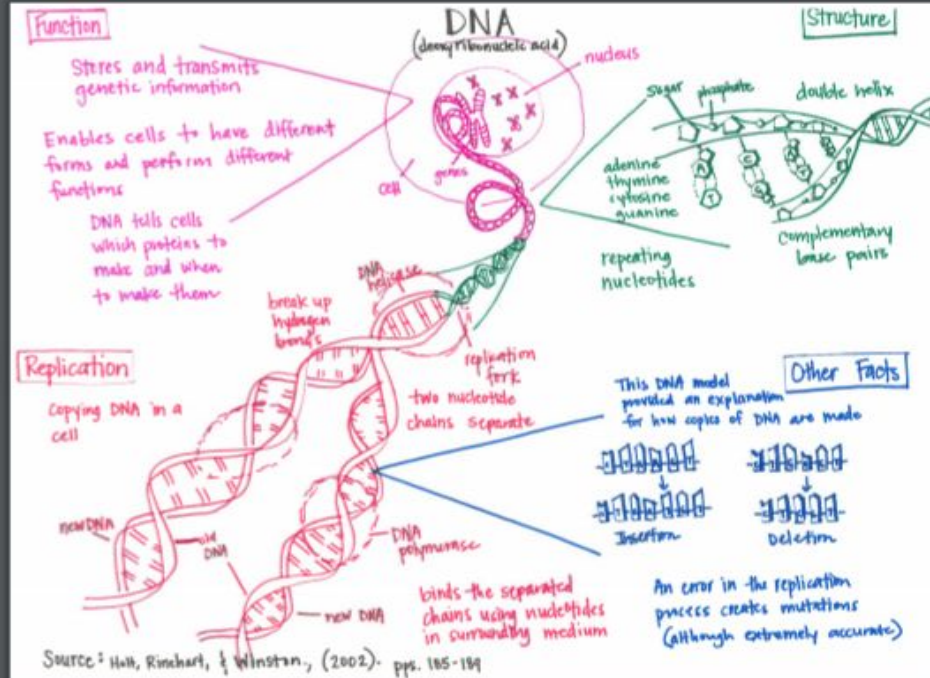 DNA
(deoxyribonucleic acid)
Function
Stores and transmits
genetic information
Enables cells to have different
forms and perform different
functions
DNA tells cells
which proteins to
make and when
to make them
nucleus
cell
genes
Structure
sugar
phosphate
double helix
adenine
thymine
cytosine
guanine
A
T
C
complementary
base pairs
repeating
nucleotides
Replication
copying DNA in a
cell
break up
hydrogen
bonds
DNA
helicase
replication
fork
two nucleotide
chains separate
new DNA
old
DNA
new DNA
DNA
polymerase
binds the separated
chains using nucleotides
in surrounding medium
Other Facts
This DNA model
provided an explanation
for how copies of DNA are made
Insertion
Deletion
An error in the replication
process creates mutations
(although extremely accurate)
Source: Holt, Rinehart, & Winston., (2002). pps. 185-189